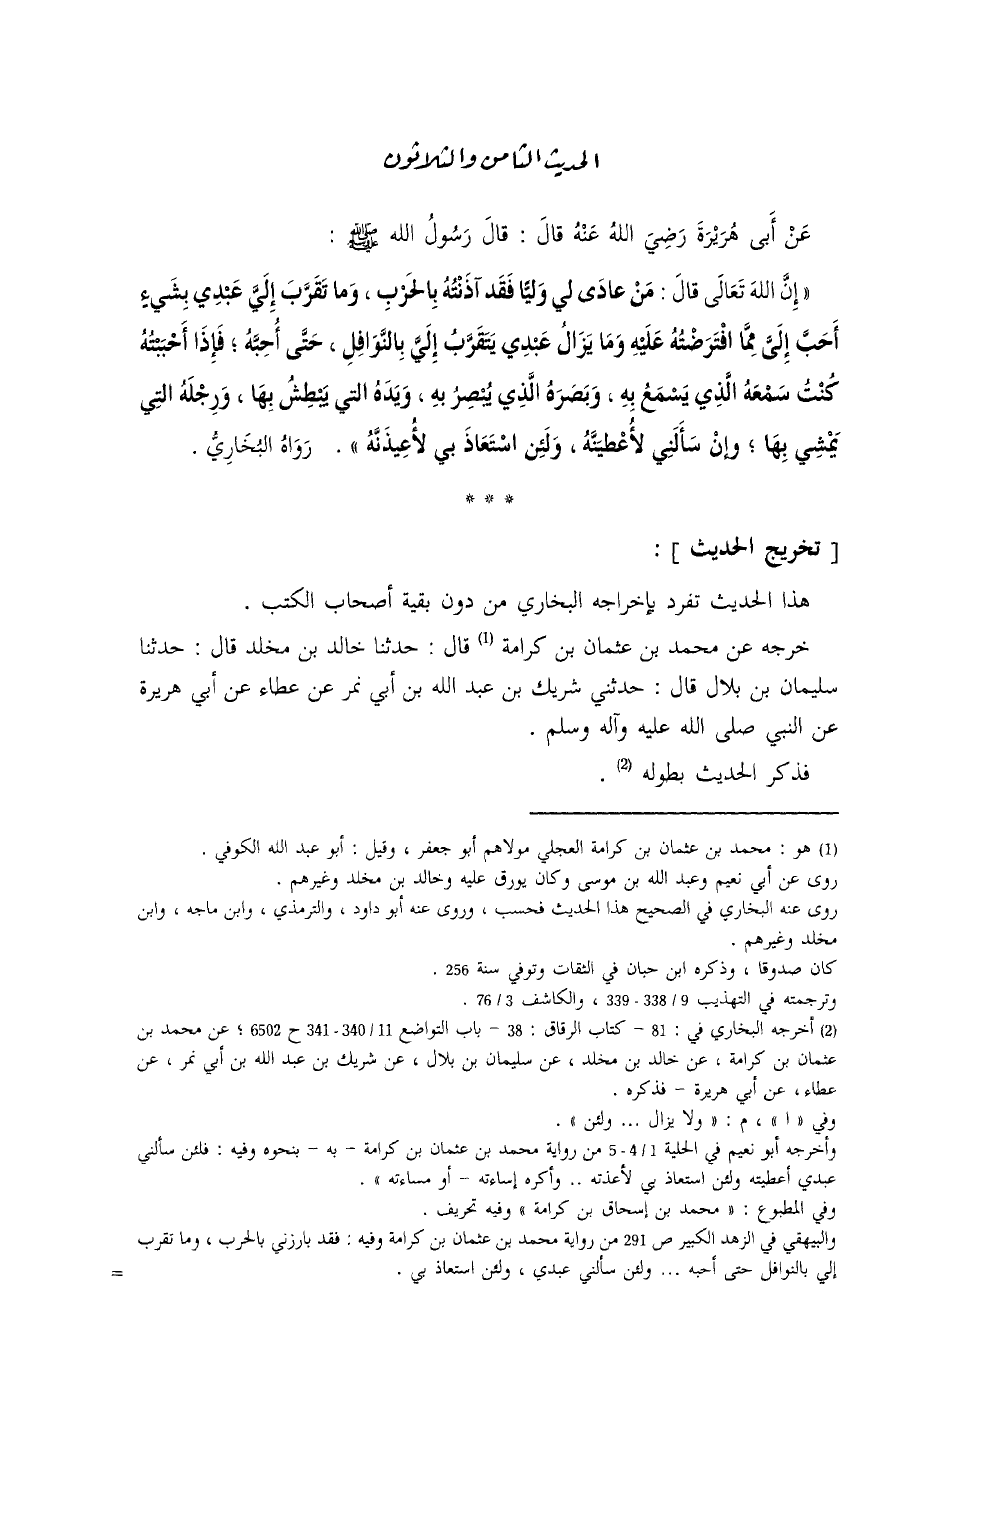 الحديث الثامن والثلاثون
عَنْ أَبى هُرَيْرَةَ رَضِيَ اللهُ عَنْهُ قالَ : قالَ رَسُولُ الله ﷺ :
« إنَّ اللهَ تَعَالَى قالَ : مَنْ عادَى لي وَليًّا فَقَد آذَنْتُهُ بِالحَرْبِ ، وَما تَقَرَّبَ إلَيَّ عَبْدِي بِشَيءٍ
أَحَبَّ إلَىَّ مِمَّا افْتَرَضْتُهُ عَلَيْهِ وَمَا يَزَالُ عَبْدِي يَتَقَرَّبُ إلَيَّ بِالنَّوَافِلِ ، حَتَّى أُحِبَّهُ ؛ فَإذَا أَحْبَبْتُهُ
كُنْتُ سَمْعَهُ الَّذِي يَسْمَعُ بِهِ ، وَبَصَرَهُ الَّذِي يُبْصِرُ بهِ ، وَيَدَهُ التي يَبْطِشُ بِهَا ، وَرِجْلَهُ التِي
يَمْشِي بِهَا ؛ وإنْ سَأَلَنِي لأُعْطيَنَّهُ ، وَلَئِن اسْتَعَاذَ بي لأُعِيذَنَّهُ » . رَوَاهُ البُخَارِيُّ .
* * *
[ تخريج الحديث ] :
هذا الحديث تفرد بإخراجه البخاري من دون بقية أصحاب الكتب .
خرجه عن محمد بن عثمان بن كرامة (1) قال : حدثنا خالد بن مخلد قال : حدثنا
سليمان بن بلال قال : حدثني شريك بن عبد الله بن أبي نمر عن عطاء عن أبي هريرة
عن النبي صلى الله عليه وآله وسلم .
فذكر الحديث بطوله (2) .
(1) هو : محمد بن عثمان بن كرامة العجلي مولاهم أبو جعفر ، وقيل : أبو عبد الله الكوفي .
روى عن أبي نعيم وعبد الله بن موسى وكان يورق عليه وخالد بن مخلد وغيرهم .
روى عنه البخاري في الصحيح هذا الحديث فحسب ، وروى عنه أبو داود ، والترمذي ، وابن ماجه ، وابن
مخلد وغيرهم .
كان صدوقا ، وذكره ابن حبان في الثقات وتوفي سنة 256 .
وترجمته في التهذيب 9 / 338 - 339 ، والكاشف 3 / 76 .
(2) أخرجه البخاري في : 81 – كتاب الرقاق : 38 – باب التواضع 11 / 340 - 341 ح 6502 ؛ عن محمد بن
عثمان بن كرامة ، عن خالد بن مخلد ، عن سليمان بن بلال ، عن شريك بن عبد الله بن أبي نمر ، عن
عطاء ، عن أبي هريرة – فذكره .
وفي « ا » ، م : « ولا يزال ... ولئن » .
وأخرجه أبو نعيم في الحلية 1 / 4 - 5 من رواية محمد بن عثمان بن كرامة – به – بنحوه وفيه : فلئن سألني
عبدي أعطيته ولئن استعاذ بي لأعذته .. وأكره إساءته – أو مساءته » .
وفي المطبوع : « محمد بن إسحاق بن كرامة » وفيه تحريف .
والبيهقي في الزهد الكبير ص 291 من رواية محمد بن عثمان بن كرامة وفيه : فقد بارزني بالحرب ، وما تقرب
إلي بالنوافل حتى أحبه ... ولئن سألني عبدي ، ولئن استعاذ بي .
=